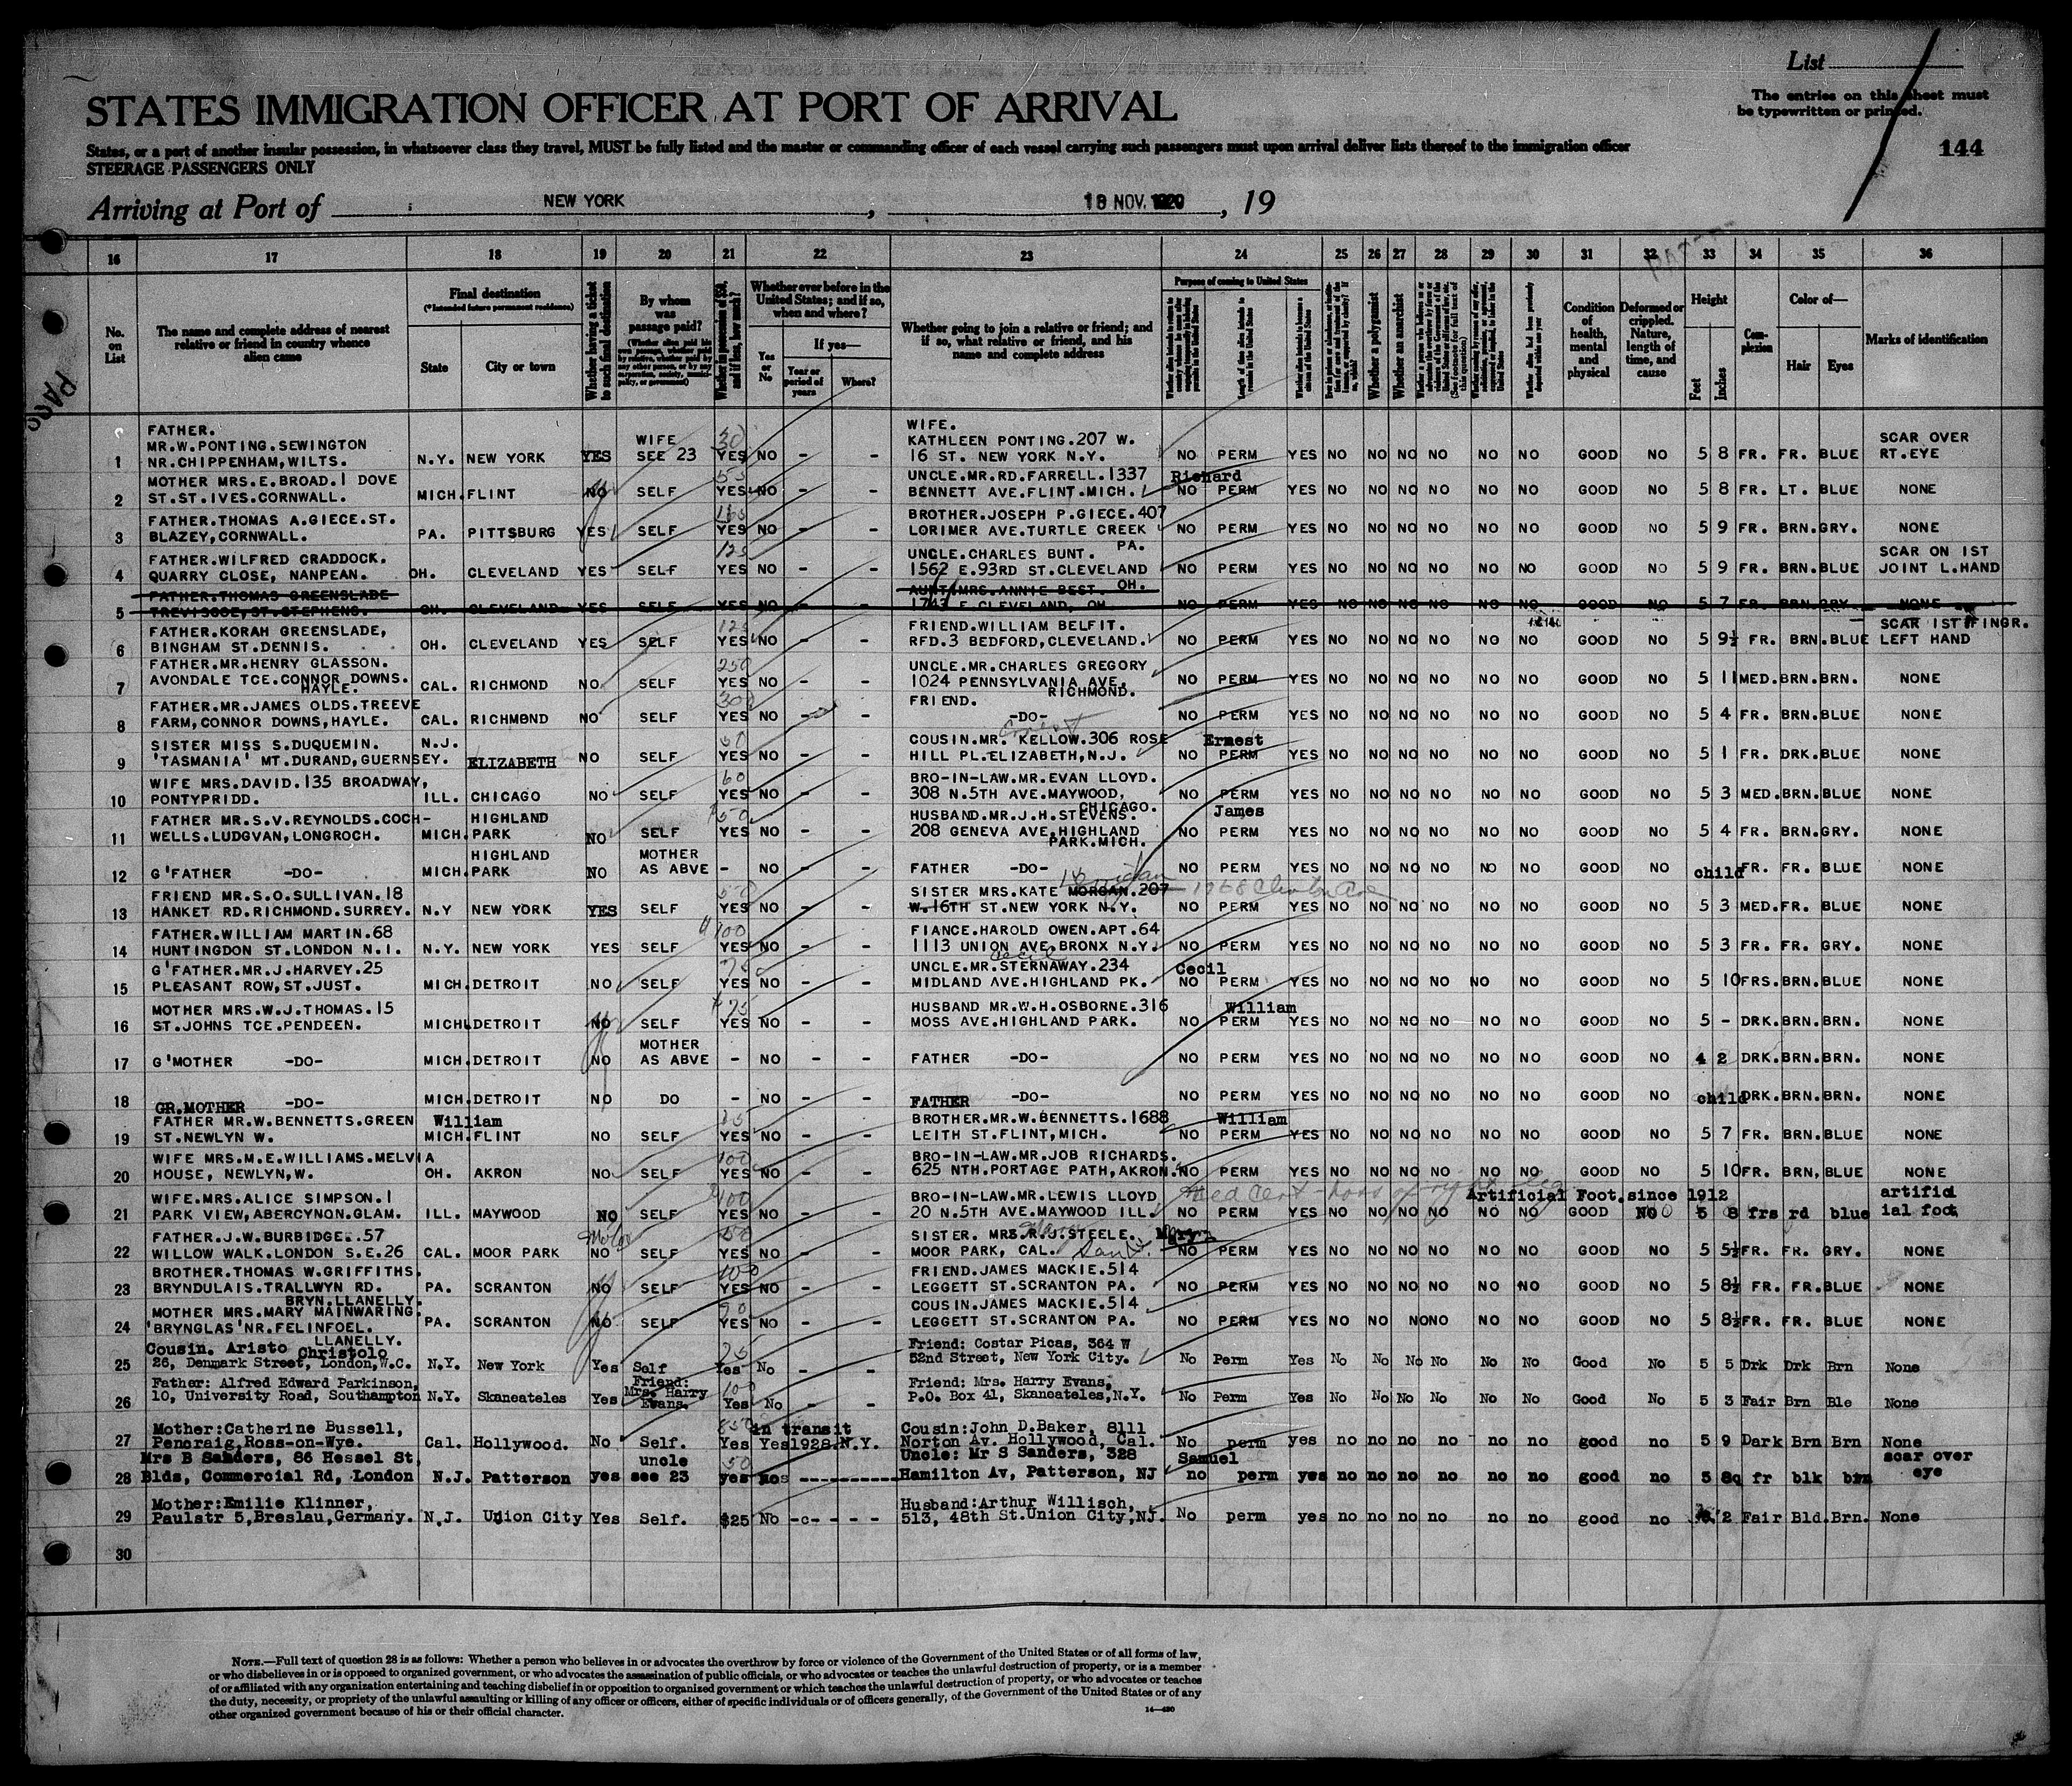 List
The entries on this sheet must
be typewritten or printed.
STATES IMMIGRATION OFFICER AT PORT OF ARRIVAL
144
States, or a port of another insular possession, in whatsoever class they travel, MUST be fully listed and the master or commanding officer of each vessel carrying such passengers must upon arrival deliver lists thereof to the immigration officer
STEERAGE PASSENGERS ONLY
Arriving at Port of NEW YORK , 18 NOV. , 19
16 17 18 19 20 21 22 23 24 25 26 27 28 29 30 31 32 33 34 35 36
No. on List
The name and complete address of nearest relative or friend in country whence alien came
Final destination
(*Intended future permanent residence)
State City or town
Whether having a ticket to such final destination
By whom was passage paid?
Whether in possession of $50, and if less, how much?
Whether ever before in the United States; and if so, when and where?
Yes or No
If yes—
Year or period of years
Where?
Whether going to join a relative or friend; and if so, what relative or friend, and his name and complete address
Purpose of coming to United States
Whether a polygamist
Whether an anarchist
Condition of health, mental and physical
Deformed or crippled. Nature, length of time, and cause
Height
Feet Inches
Complexion
Color of—
Hair Eyes
Marks of identification
FATHER. WIFE.
MR.W.PONTING.SEWINGTON WIFE 30 KATHLEEN PONTING.207 W. SCAR OVER
1 NR.CHIPPENHAM,WILTS. N.Y. NEW YORK YES SEE 23 YES NO - - 16 ST. NEW YORK N.Y. NO PERM YES NO NO NO NO NO NO GOOD NO 5 8 FR. FR. BLUE RT.EYE
MOTHER MRS.E.BROAD.1 DOVE UNCLE.MR.RD.FARRELL.1337 Richard
2 ST.ST.IVES.CORNWALL. MICH. FLINT NO SELF YES NO - - BENNETT AVE.FLINT.MICH. NO PERM YES NO NO NO NO NO NO GOOD NO 5 8 FR. LT. BLUE NONE
FATHER.THOMAS A.GIECE.ST. BROTHER.JOSEPH P.GIECE.407
3 BLAZEY,CORNWALL. PA. PITTSBURG YES SELF YES NO - - LORIMER AVE.TURTLE CREEK PA. NO PERM YES NO NO NO NO NO NO GOOD NO 5 9 FR. BRN. GRY. NONE
FATHER.WILFRED CRADDOCK. 125 UNCLE.CHARLES BUNT. SCAR ON 1ST
4 QUARRY CLOSE, NANPEAN. OH. CLEVELAND YES SELF YES NO - - 1562 E.93RD ST.CLEVELAND OH. NO PERM YES NO NO NO NO NO NO GOOD NO 5 9 FR. BRN. BLUE JOINT L.HAND
FATHER.THOMAS GREENSLADE AUNT.MRS.ANNIE BEST.
5 TREVISCOE,ST.STEPHENS. OH. CLEVELAND YES SELF YES NO 1743 E CLEVELAND, OH. NO PERM YES NO NO NO NO NO NO GOOD NO 5 7 FR. BRN. GRY NONE
FATHER.KORAH GREENSLADE, 125 FRIEND.WILLIAM BELFIT. SCAR 1ST FINGR.
6 BINGHAM ST.DENNIS. OH. CLEVELAND YES SELF YES NO - - RFD.3 BEDFORD,CLEVELAND. NO PERM YES NO NO NO NO NO NO GOOD NO 5 9½ FR. BRN. BLUE LEFT HAND
FATHER.MR.HENRY GLASSON. 250 UNCLE.MR.CHARLES GREGORY
7 AVONDALE TCE.CONNOR DOWNS. HAYLE. CAL. RICHMOND NO SELF YES NO - - 1024 PENNSYLVANIA AVE, RICHMOND. NO PERM YES NO NO NO NO NO NO GOOD NO 5 11 MED. BRN. BRN. NONE
FATHER.MR.JAMES OLDS.TREEVE 300 FRIEND.
8 FARM,CONNOR DOWNS,HAYLE. CAL. RICHMOND NO SELF YES NO - - -DO- NO PERM YES NO NO NO NO NO NO GOOD NO 5 4 FR. BRN. BLUE NONE
SISTER MISS S.DUQUEMIN. N.J. 50 COUSIN.MR. KELLOW.306 ROSE Ernest
9 'TASMANIA' MT.DURAND,GUERNSEY. ELIZABETH NO SELF YES NO - - HILL PL.ELIZABETH,N.J. NO PERM YES NO NO NO NO NO NO GOOD NO 5 1 FR. DRK. BLUE NONE
WIFE MRS.DAVID.135 BROADWAY, 60 BRO-IN-LAW.MR.EVAN LLOYD.
10 PONTYPRIDD. ILL. CHICAGO NO SELF YES NO - - 308 N.5TH AVE.MAYWOOD, CHICAGO. NO PERM YES NO NO NO NO NO NO GOOD NO 5 3 MED. BRN. BLUE NONE
FATHER MR.S.V.REYNOLDS.COCH- HIGHLAND 50 HUSBAND.MR.J.H.STEVENS. James
11 WELLS.LUDGVAN,LONGROCH. MICH. PARK NO SELF YES NO - - 208 GENEVA AVE.HIGHLAND PARK.MICH. NO PERM YES NO NO NO NO NO NO GOOD NO 5 4 FR. BRN. GRY. NONE
HIGHLAND MOTHER
12 G'FATHER -DO- MICH. PARK NO AS ABVE - NO - - FATHER -DO- NO PERM YES NO NO NO NO NO NO GOOD NO child FR. FR. BLUE NONE
FRIEND MR.S.O.SULLIVAN.18 50 SISTER MRS.KATE MORGAN.207
13 HANKET RD.RICHMOND.SURREY. N.Y NEW YORK YES SELF YES NO - - W.16TH ST.NEW YORK N.Y. NO PERM YES NO NO NO NO NO NO GOOD NO 5 3 MED. FR. BLUE NONE
FATHER.WILLIAM MARTIN.68 100 FIANCE.HAROLD OWEN.APT.64
14 HUNTINGDON ST.LONDON N.I. N.Y. NEW YORK YES SELF YES NO - - 1113 UNION AVE,BRONX N.Y. NO PERM YES NO NO NO NO NO NO GOOD NO 5 3 FR. FR. GRY. NONE
G'FATHER.MR.J.HARVEY.25 75 Cecil UNCLE.MR.STERNAWAY.234 Cecil
15 PLEASANT ROW,ST.JUST. MICH. DETROIT NO SELF YES NO - - MIDLAND AVE.HIGHLAND PK. NO PERM YES NO NO NO NO NO NO GOOD NO 5 10 FRS. BRN. BLUE NONE
MOTHER MRS.W.J.THOMAS.15 75 HUSBAND MR.W.H.OSBORNE.316 William
16 ST.JOHNS TCE.PENDEEN. MICH. DETROIT NO SELF YES NO - - MOSS AVE.HIGHLAND PARK. NO PERM YES NO NO NO NO NO NO GOOD NO 5 - DRK. BRN. BRN. NONE
MOTHER
17 G'MOTHER -DO- MICH. DETROIT NO AS ABVE - NO - - FATHER -DO- NO PERM YES NO NO NO NO NO NO GOOD NO 4 2 DRK. BRN. BRN. NONE
18 GR.MOTHER -DO- MICH. DETROIT NO DO - NO - - FATHER -DO- NO PERM YES NO NO NO NO NO NO GOOD NO child DRK. BRN. BRN. NONE
FATHER MR.W.BENNETTS.GREEN William BROTHER.MR.W.BENNETTS.1688 William
19 ST.NEWLYN W. MICH. FLINT NO SELF YES NO - - LEITH ST.FLINT,MICH. NO PERM YES NO NO NO NO NO NO GOOD NO 5 7 FR. BRN. BLUE NONE
WIFE MRS.M.E.WILLIAMS.MELVIA 100 BRO-IN-LAW.MR.JOB RICHARDS.
20 HOUSE, NEWLYN,W. OH. AKRON NO SELF YES NO - - 625 NTH.PORTAGE PATH,AKRON. NO PERM YES NO NO NO NO NO NO GOOD NO 5 10 FR. BRN, BLUE NONE
WIFE.MRS.ALICE SIMPSON.1 100 BRO-IN-LAW.MR.LEWIS LLOYD Med Cert - loss of right leg Artificial Foot.since 1912 artific
21 PARK VIEW,ABERCYNON.GLAM. ILL. MAYWOOD NO SELF YES NO - - 20 N.5TH AVE.MAYWOOD ILL. NO PERM YES NO NO NO NO NO NO GOOD NO 5 8 frs rd blue ial foot
FATHER.J.W.BURBIDGE..57 50 SISTER. MRS.R.J.STEELE. Mary
22 WILLOW WALK.LONDON S.E.26 CAL. MOOR PARK NO SELF YES NO - - MOOR PARK, CAL. NO PERM YES NO NO NO NO NO NO GOOD NO 5 5½ FR. FR. GRY. NONE
BROTHER.THOMAS W.GRIFFITHS. 100 FRIEND.JAMES MACKIE.514
23 BRYNDULAIS.TRALLWYN RD. BRYN.LLANELLY. PA. SCRANTON NO SELF YES NO - - LEGGETT ST.SCRANTON PA. NO PERM YES NO NO NO NO NO NO GOOD NO 5 8½ FR. FR. BLUE NONE
MOTHER MRS.MARY MAINWARING. 90 COUSIN.JAMES MACKIE.514
24 'BRYNGLAS'NR.FELINFOEL. LLANELLY. PA. SCRANTON NO SELF YES NO - - LEGGETT ST.SCRANTON PA. NO PERM YES NO NO NO NO NO NO GOOD NO 5 8½ FR. FR. BLUE NONE
Cousin. Aristo Christolo 25 Friend: Costar Picas, 364 W
25 26, Denmark Street, London,W.C. N.Y. New York Yes Self Yes No - - 52nd Street, New York City. No Perm Yes No No No No No No Good No 5 5 Drk Drk Brn None
Father: Alfred Edward Parkinson, Friend: 100 Friend: Mrs. Harry Evans,
26 10, University Road, Southampton N.Y. Skaneateles Yes Mrs. Harry Evans. Yes No - - P.O. Box 41, Skaneateles,N.Y. No Perm Yes No No No No No No Good No 5 3 Fair Brn Ble None
Mother:Catherine Bussell, 850 in transit Cousin:John D.Baker, 8111
27 Pencraig,Ross-on-Wye. Cal. Hollywood. No Self. Yes Yes 1928 N.Y. Norton Av. Hollywood, Cal. No perm yes no no no no no no good no 5 9 Dark Brn Brn None
Mrs B Sanders, 86 Hessel St, uncle 50 Uncle: Mr S Sanders, 328 Samuel scar over
28 Blds, Commercial Rd, London N.J. Patterson yes see 23 yes no Hamilton Av, Patterson, NJ no perm yes no no no no no no good no 5 8 fr blk brn eye
Mother:Emilie Klinner, Husband:Arthur Willisch,
29 Paulstr 5,Breslau,Germany. N.J. Union City Yes Self. $25 No 513, 48th St.Union City,NJ. No perm yes no no no no no no good no 2 Fair Bld. Brn. None
30
NOTE.—Full text of question 28 is as follows: Whether a person who believes in or advocates the overthrow by force or violence of the Government of the United States or of all forms of law,
or who disbelieves in or is opposed to organized government, or who advocates the assassination of public officials, or who advocates or teaches the unlawful destruction of property, or is a member
of or affiliated with any organization entertaining and teaching disbelief in or opposition to organized government or which teaches the unlawful destruction of property, or who advocates or teaches
the duty, necessity, or propriety of the unlawful assaulting or killing of any officer or officers, either of specific individuals or of officers generally, of the Government of the United States or of any
other organized government because of his or their official character.
14—480